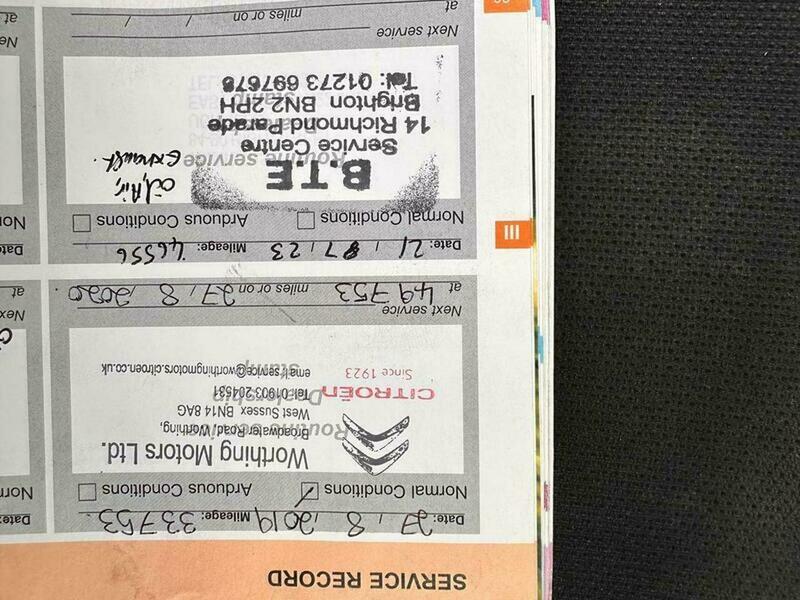 SERVICE RECORD
Date: 27, 8, 2019 Mileage: 33753
Normal Conditions Arduous Conditions
Worthing Motors Ltd.
Broadwater Road, Worthing,
West Sussex BN14 8AG
Tel: 01903 204531
email: service@worthingmotors.citroen.co.uk
CITROËN
Since 1923
Routine service
Dealership
Stamp
Next service
at 49753 miles or on 27, 8, 2020
III
Date: 21, 87, 23 Mileage: 46556
Normal Conditions Arduous Conditions
B.T.E
Service Centre
14 Richmond Parade
Brighton BN2 2PH
Tel: 01273 697678
Routine service
Oil, Air,
Exhaust.
Next service
at miles or on / /
Date:
Norm
Next
at
Date:
Nor
Next
at